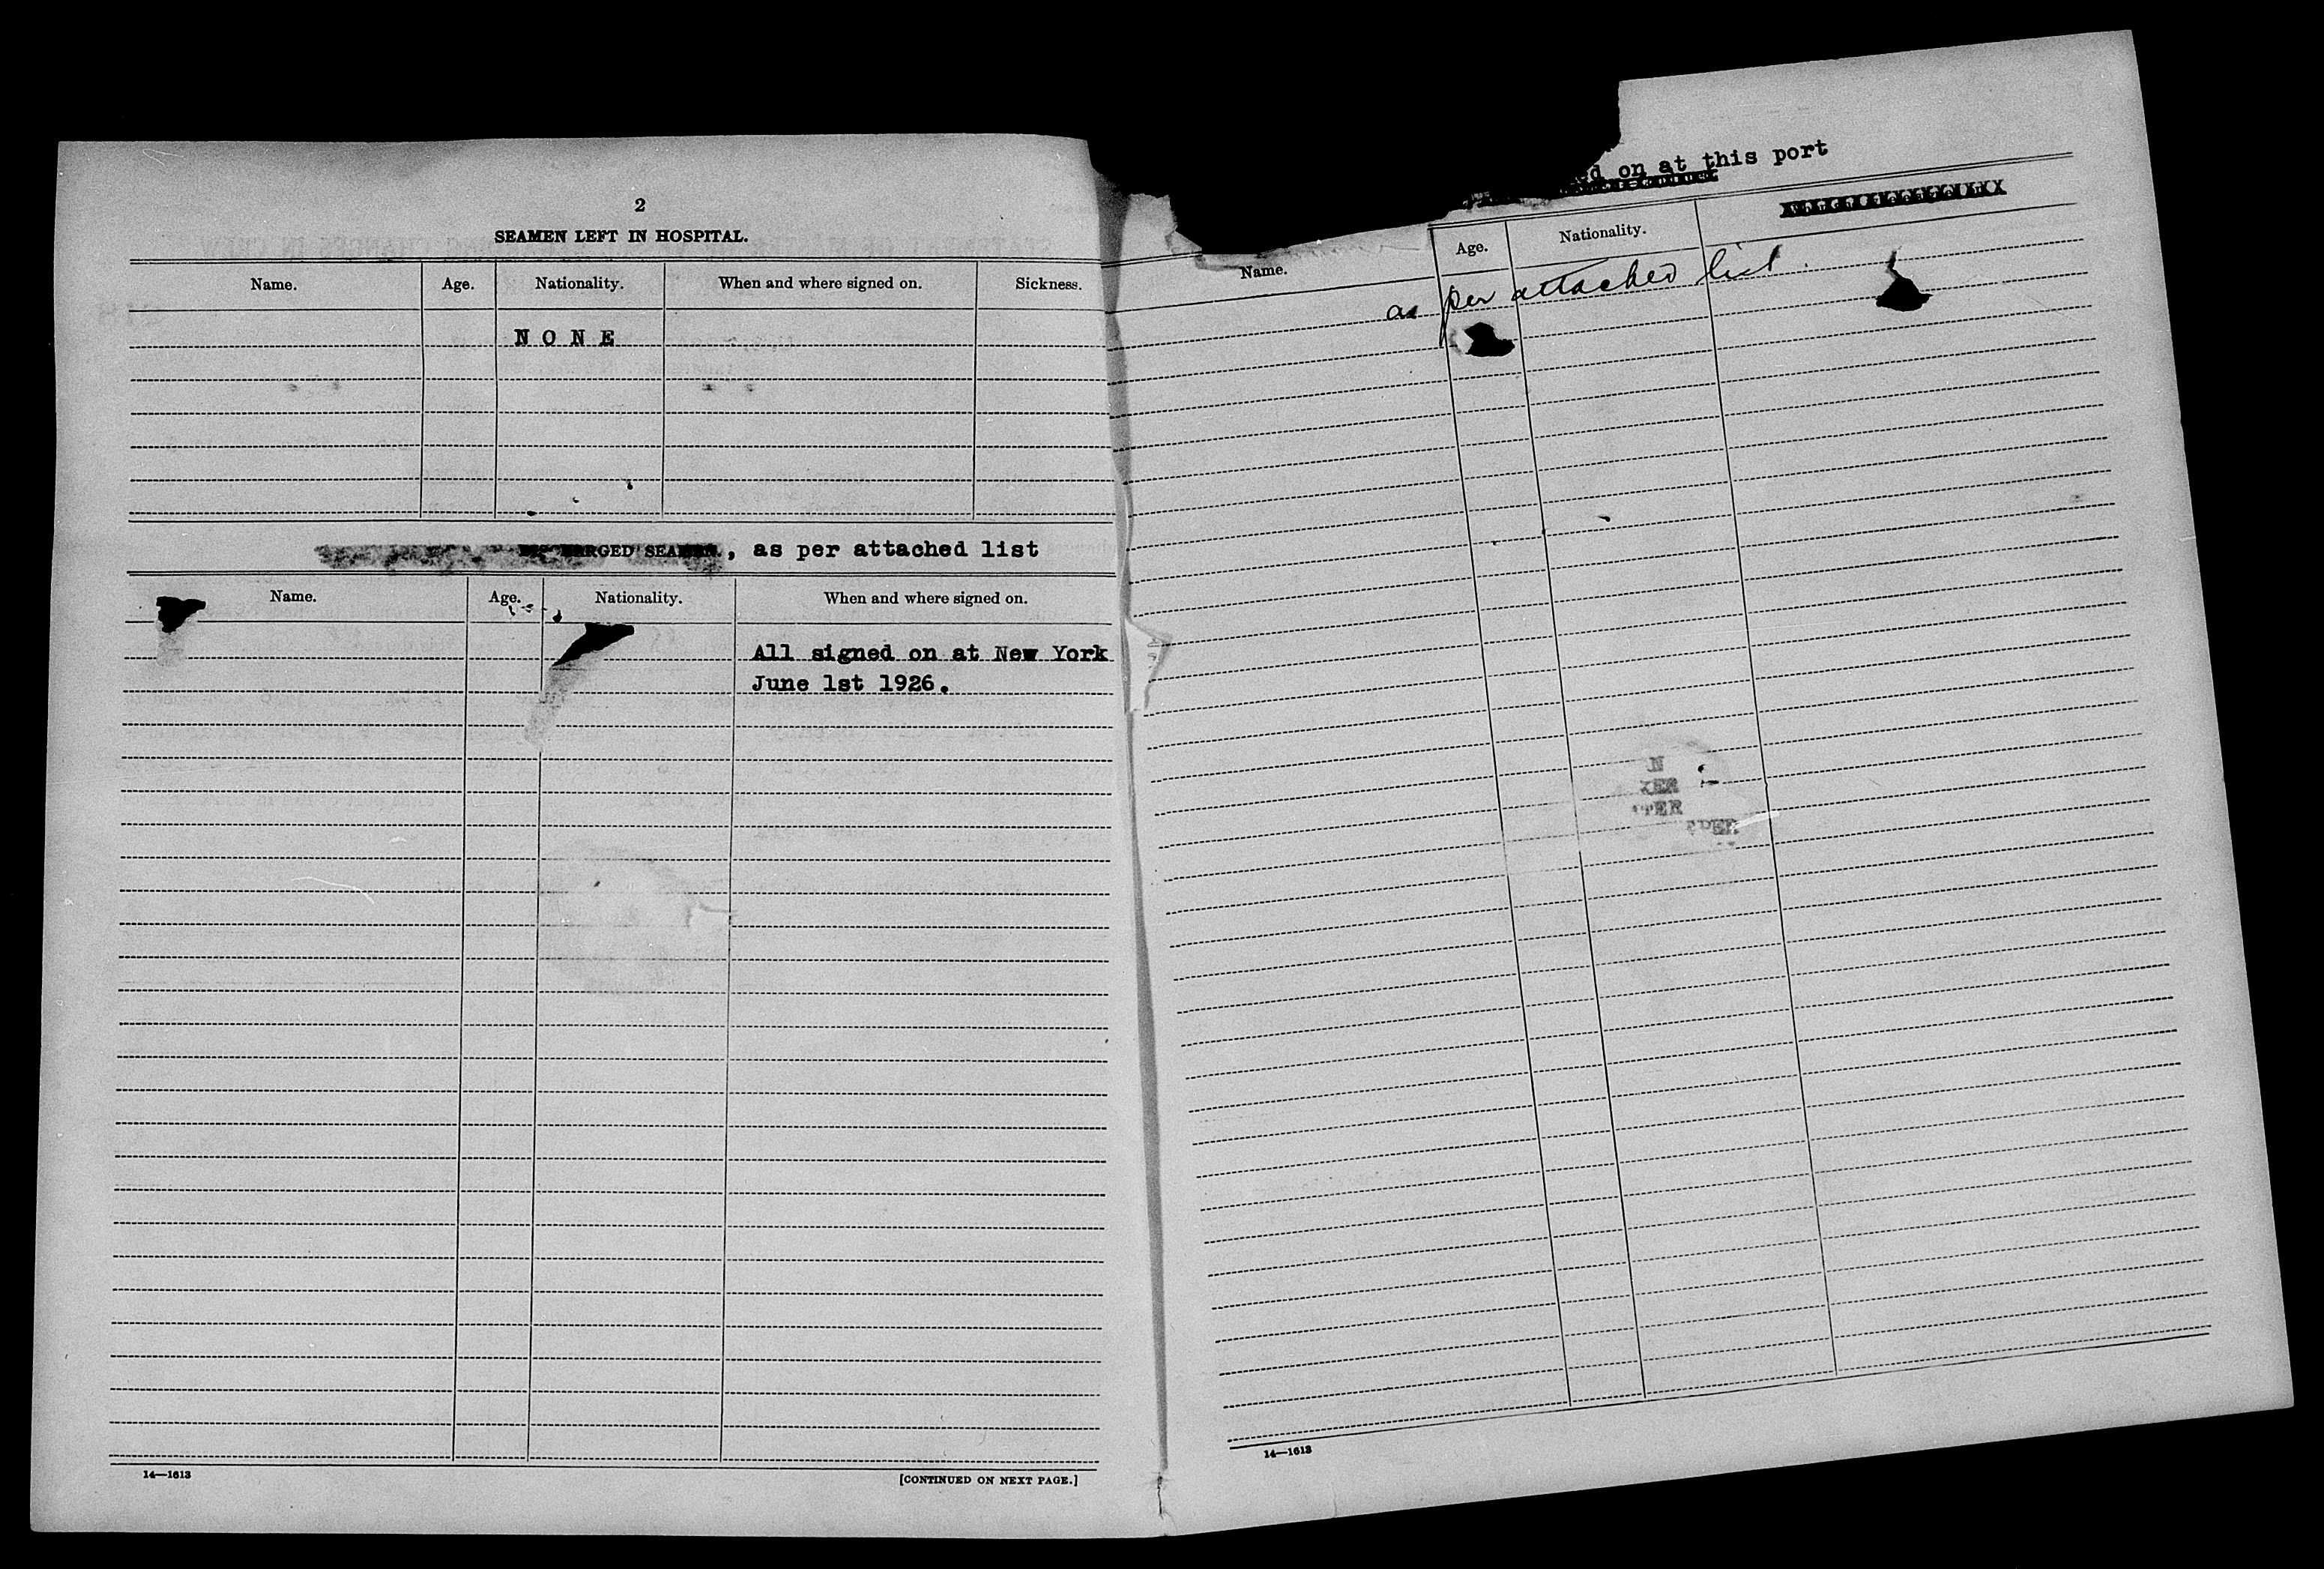 2
SEAMEN LEFT IN HOSPITAL.
Name. Age. Nationality. When and where signed on. Sickness.
N O N E
ARGED SEAMEN., as per attached list
Name. Age. Nationality. When and where signed on.
All signed on at New York
June 1st 1926.
14—1613
[CONTINUED ON NEXT PAGE.]
ed on at this port
Name. Age. Nationality.
as per attached list.
N
KER
TER
14—1613